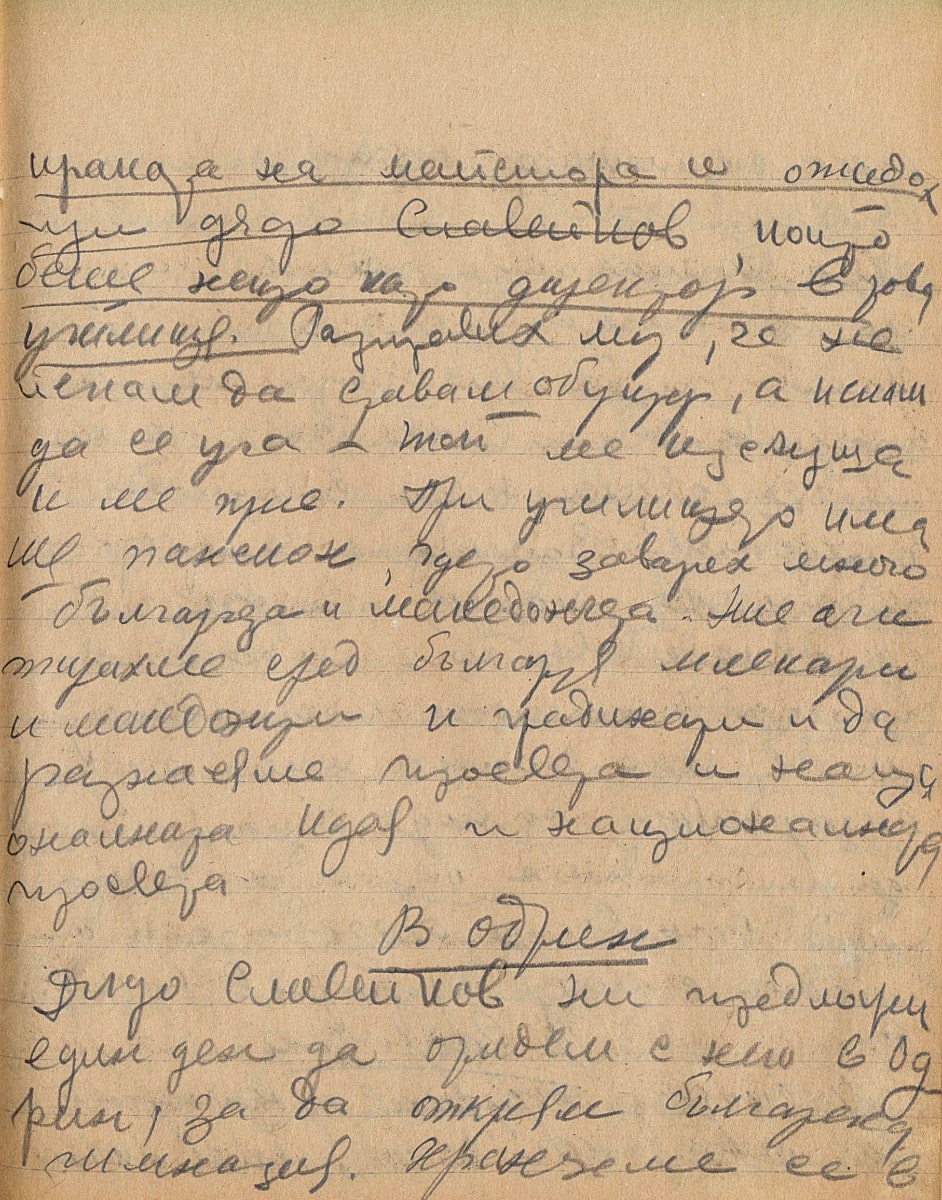 краката на майстора и отидох
при дядо Славейков, който
беше нещо като директор в това
училище. Разправих му, че не
искам да ставам обущар, а искам
да се уча – той ме изслуша
и ме прие. При училището има
ше пансион, где заварих много
българчета и македончета. Ние аги
тирахме сред българ. млекари
и македонци и градинари и да
разнасяме просвета и наци
оналната идея и националната
просвета
В Одрин
Дядо Славейков ни предложи
един ден да отидем с него в Од
рин, за да открием българска
гимназия. Хранехме се в